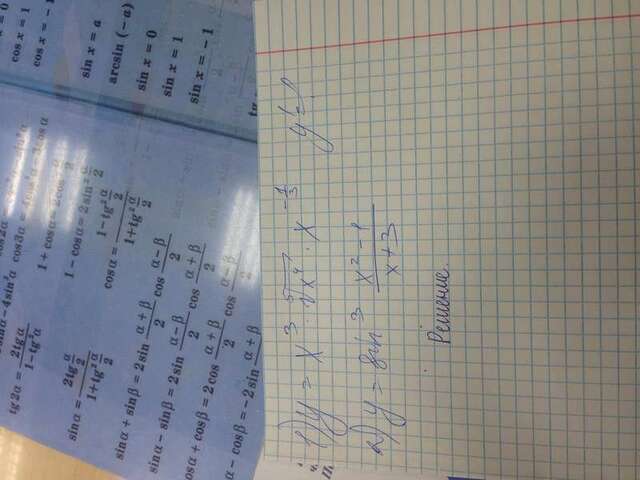 cos3α = 4cos³α − 3cosα
tg2α = 2tgα / 1−tg²α
1 + cosα = 2cos² α/2
sinα = 2tg α/2 / 1+tg² α/2
1 − cosα = 2sin² α/2
cosα = 1−tg² α/2 / 1+tg² α/2
sinα + sinβ = 2sin α+β/2 cos α−β/2
sinα − sinβ = 2sin α−β/2 cos α+β/2
osα + cosβ = 2cos α+β/2 cos α−β/2
α − cosβ = −2sin α+β
cos x = 1
cos x = −1
sin x = a
arcsin (−a)
sin x = 0
sin x = 1
sin x = −1
tg
1) y = x³ · ⁵√x⁴ · x^(-1/3) y' = ?
2) y = sin³ x²−1 / x+3
Решение.